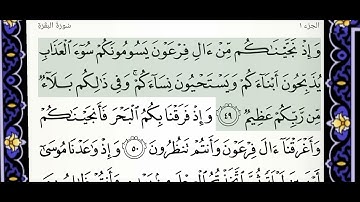 الجزء ١ سورة البقرة
وَإِذْ نَجَّيْنَٰكُم مِّنْ ءَالِ فِرْعَوْنَ يَسُومُونَكُمْ سُوٓءَ ٱلْعَذَابِ
يُذَبِّحُونَ أَبْنَآءَكُمْ وَيَسْتَحْيُونَ نِسَآءَكُمْ ۚ وَفِى ذَٰلِكُم بَلَآءٌ
مِّن رَّبِّكُمْ عَظِيمٌ ﴿٤٩﴾ وَإِذْ فَرَقْنَا بِكُمُ ٱلْبَحْرَ فَأَنجَيْنَٰكُمْ
وَأَغْرَقْنَآ ءَالَ فِرْعَوْنَ وَأَنتُمْ تَنظُرُونَ ﴿٥٠﴾ وَإِذْ وَٰعَدْنَا مُوسَىٰٓ